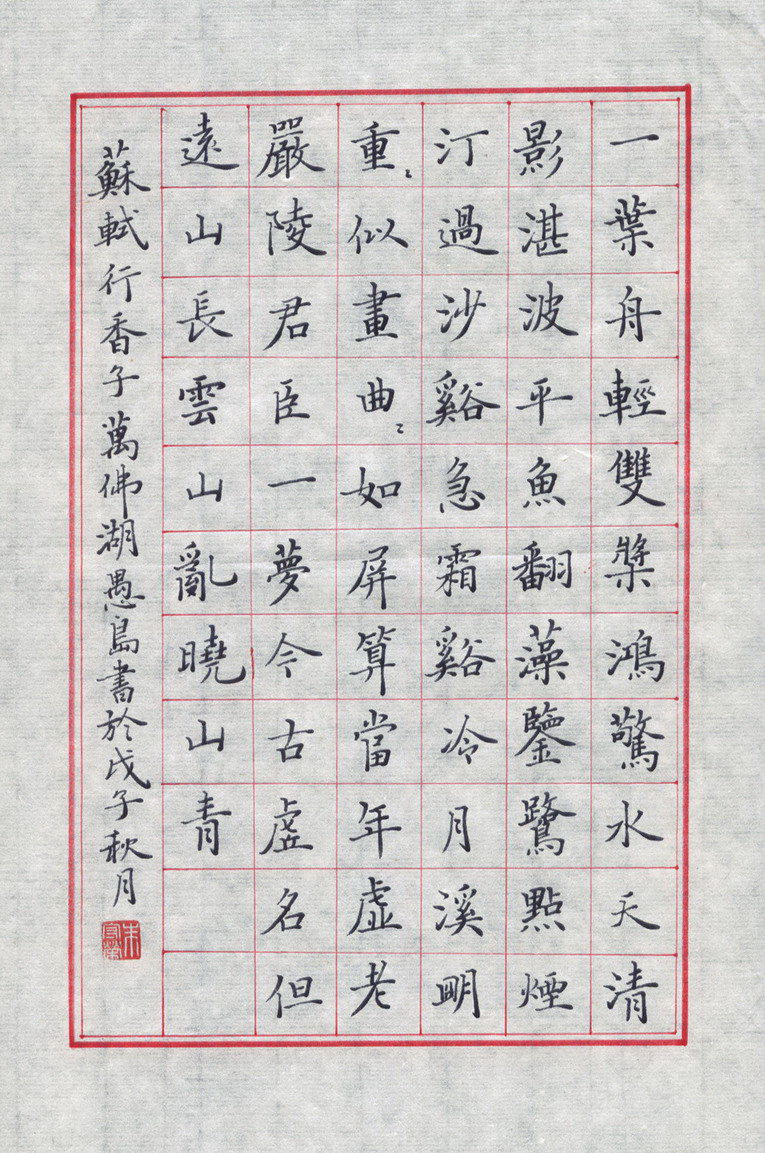 一葉舟輕雙槳鴻驚水天清
影湛波平魚翻藻鑒鷺點煙
汀過沙谿急霜谿冷月溪明
重〻似畫曲〻如屏算當年虛老
嚴陵君臣一夢今古虛名但
遠山長雲山亂曉山青
蘇軾行香子萬佛湖愚島書於戊子秋月